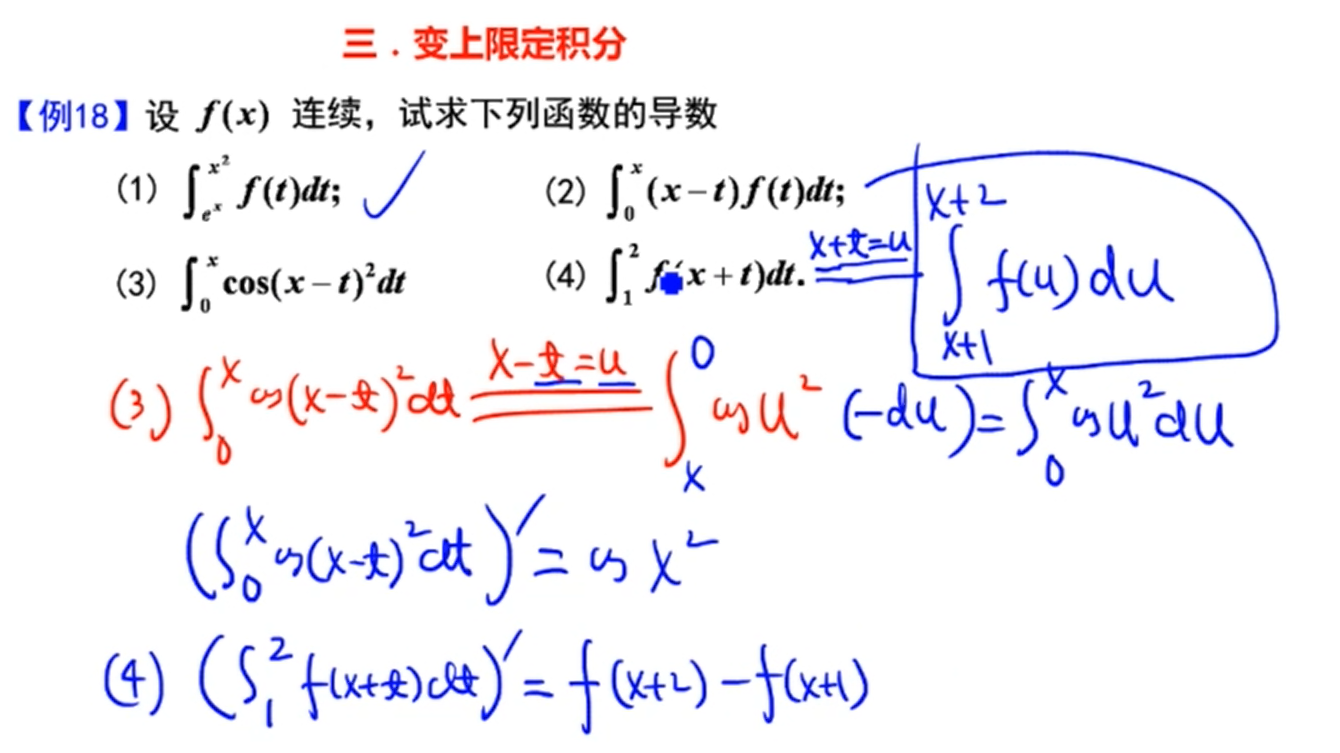 三．变上限定积分
【例18】设 f(x) 连续，试求下列函数的导数
(1) ∫_{e^x}^{x^2} f(t)dt; ✓ (2) ∫_0^x (x−t)f(t)dt;
(3) ∫_0^x cos(x−t)^2dt (4) ∫_1^2 f(x+t)dt. x+t=u ∫_{x+1}^{x+2} f(u)du
(3) ∫_0^x cos(x-t)^2dt x-t=u ∫_x^0 cos u^2 (-du) = ∫_0^x cos u^2 du
(∫_0^x cos(x-t)^2dt)′ = cos x^2
(4) (∫_1^2 f(x+t)dt)′ = f(x+2) - f(x+1)